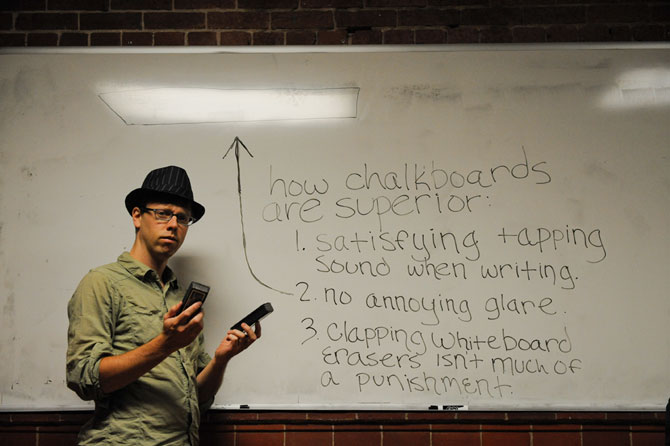 how chalkboards
are superior:
1. satisfying tapping
sound when writing.
2. no annoying glare.
3. clapping whiteboard
erasers isn't much of
a punishment.